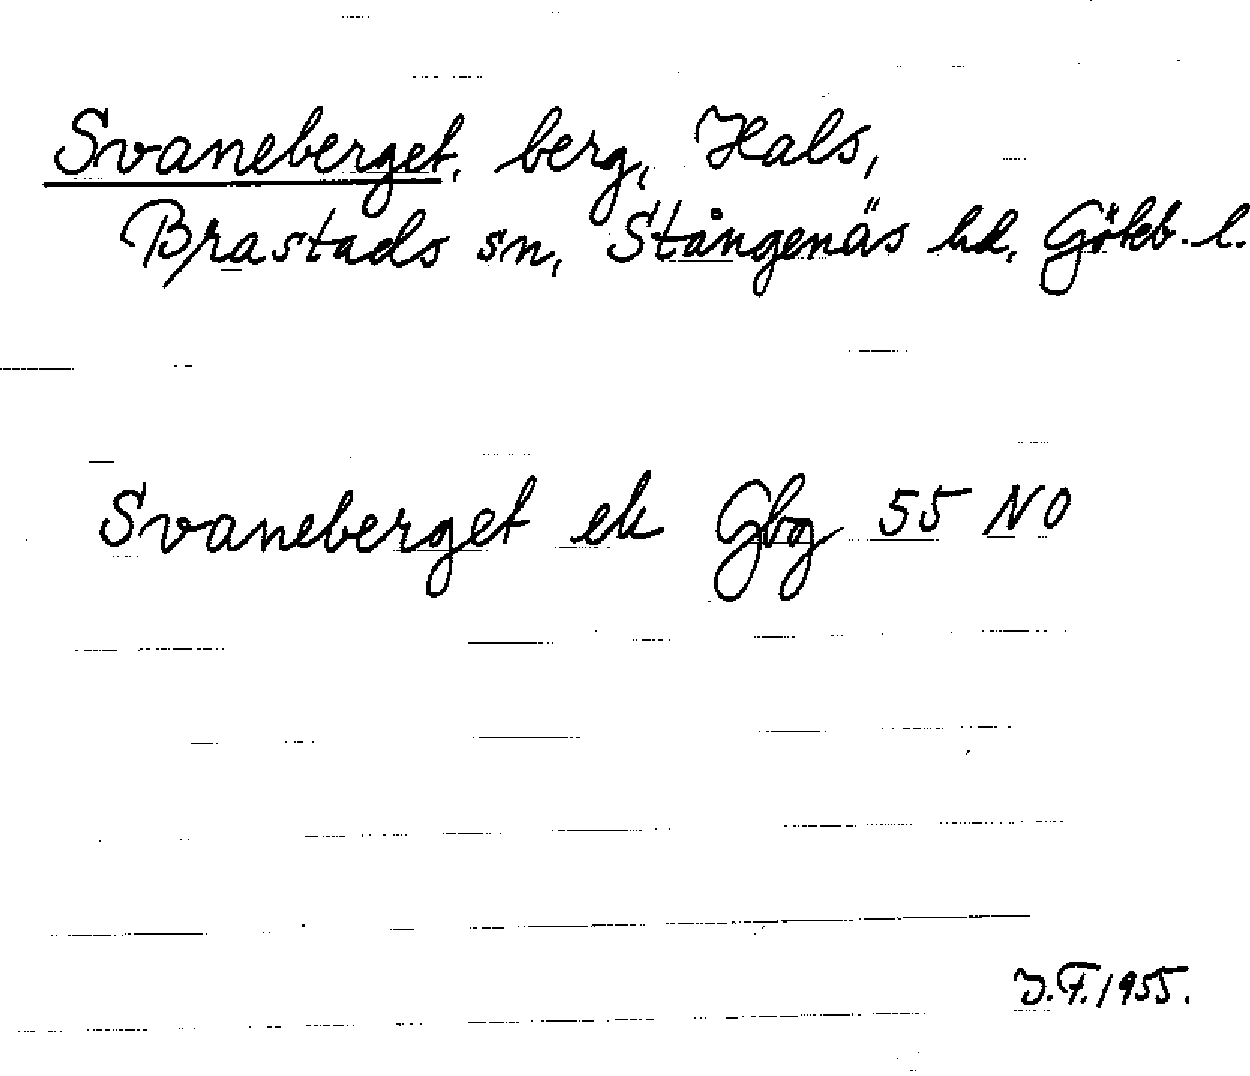 Svaneberget, berg, Hals,
Brastads sn, Stångenäs hd, Göteb. l.
Svaneberget ek Gbg 55 NO
J.F. 1955.